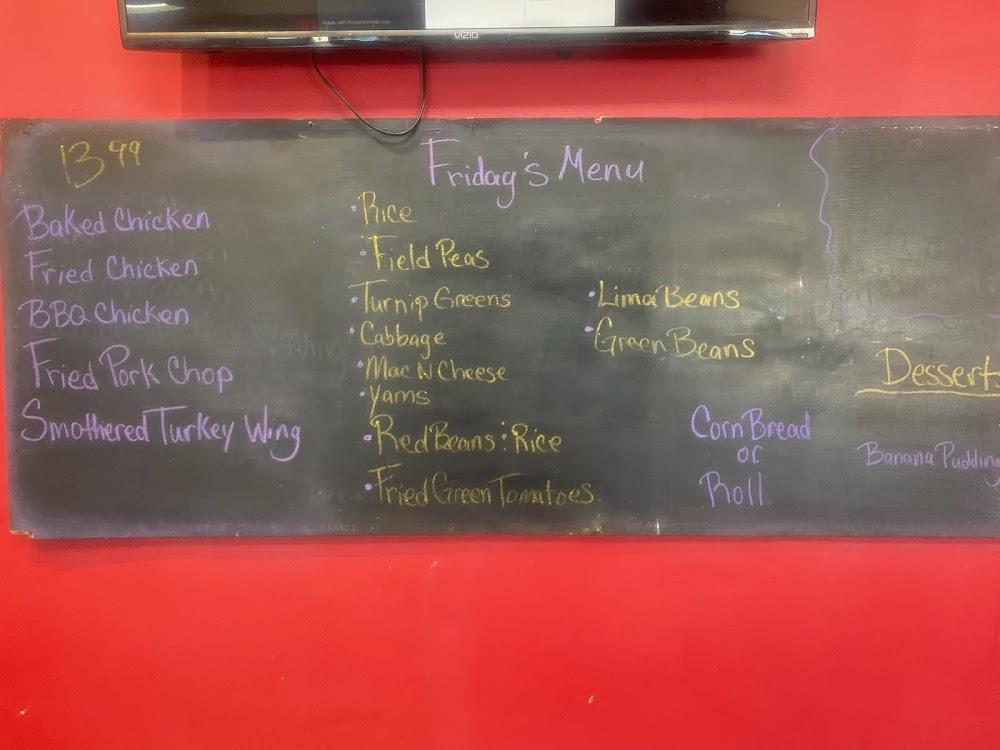 VIZIO
13 99
Friday's Menu
Baked Chicken
Fried Chicken
BBQ Chicken
Fried Pork Chop
Smothered Turkey Wing
· Rice
· Field Peas
· Turnip Greens
· Cabbage
· Mac N Cheese
· Yams
· Red Beans : Rice
· Fried Green Tomatoes
· Lima Beans
· Green Beans
Corn Bread
or
Roll
Desserts
Banana Pudding